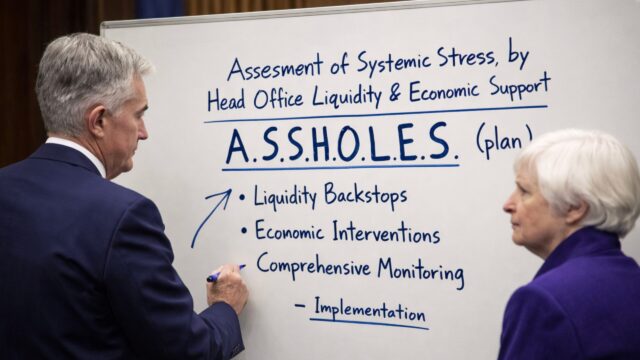 Assesment of Systemic Stress, by
Head Office Liquidity & Economic Support
A.S.S.H.O.L.E.S. (plan)
• Liquidity Backstops
• Economic Interventions
Comprehensive Monitoring
– Implementation